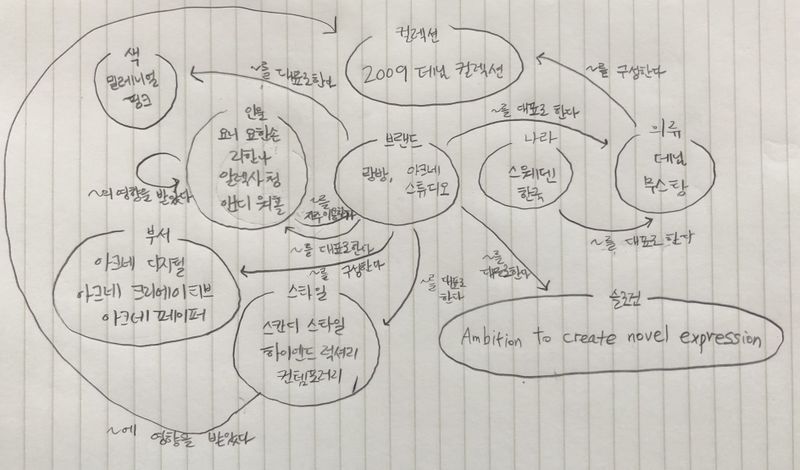 컬렉션
2009 데님 컬렉션
색
밀레니얼
핑크
~를 대표로한다
~를 구성한다
인물
요니 요한손
리한나
알렉사 청
앤디 워홀
~의 영향을 받았다
브랜드
랑방, 아크네
스튜디오
~를 대표로 한다
나라
스웨덴
한국
의류
데님
무스탕
~를 대표로 한다
~를
~를 대표로한다
~를 구성한다
부서
아크네 디지털
아크네 크리에이티브
아크네 페이퍼
스타일
스칸디 스타일
하이엔드 럭셔리
컨템포러리
~를 대표로
한다
~를
대표로한다
슬로건
Ambition to create novel expression
~에 영향을 받았다